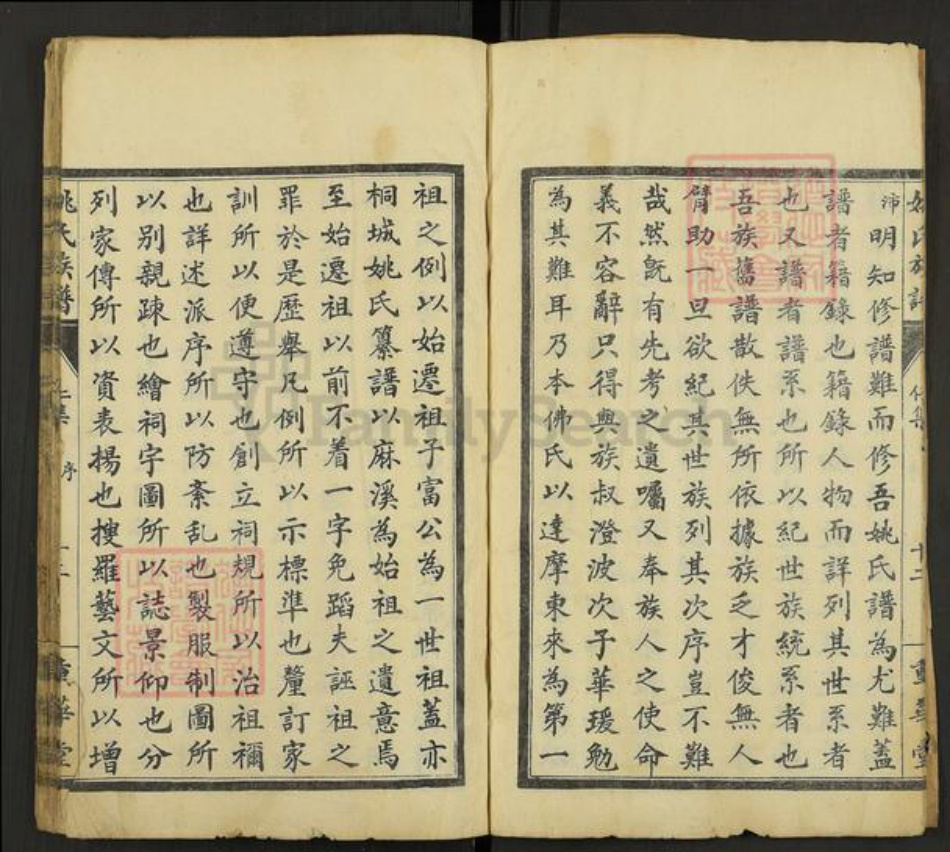 沛明知修譜難而修吾姚氏譜為尤難蓋
譜者籍錄也籍錄人物而詳列其世系者
也又譜者譜系也所以紀世族統系者也
吾族舊譜散佚無所依據族乏才俊無人
臂助一旦欲紀其世族列其次序豈不難
哉然既有先考之遺囑又奉族人之使命
義不容辭只得與族叔澄波次子華瑗勉
為其難耳乃本佛氏以達摩東來為第一
祖之例以始遷祖子富公為一世祖蓋亦
桐城姚氏纂譜以麻溪為始祖之遺意焉
至始遷祖以前不着一字免蹈夫誣祖之
罪於是歷舉凡例所以示標準也釐訂家
訓所以便遵守也創立祠規所以治祖禰
也詳述派序所以防紊乱也製服制圖所
以別親踈也繪祠宇圖所以誌景仰也分
列家傳所以資表揚也搜羅藝文所以增
姚氏族譜
序
FamilySearch